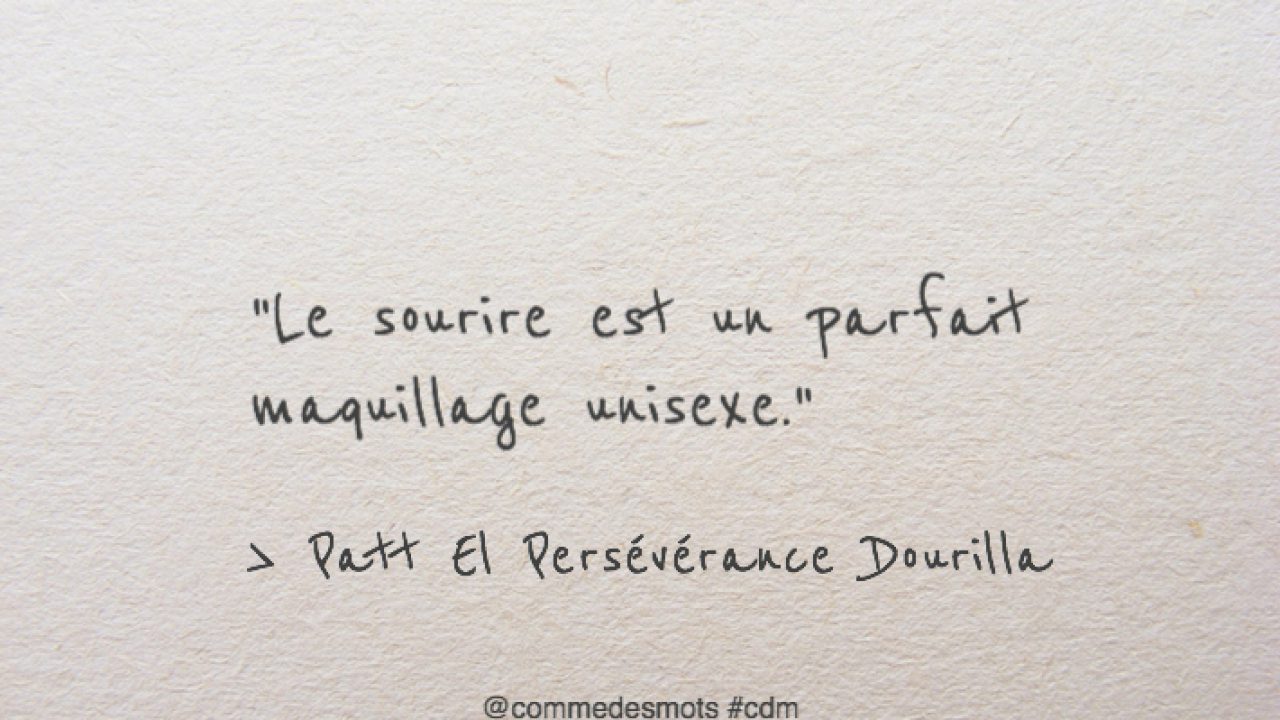 "Le sourire est un parfait
maquillage unisexe."
> Patt El Persévérance Dourilla
@commedesmots #cdm